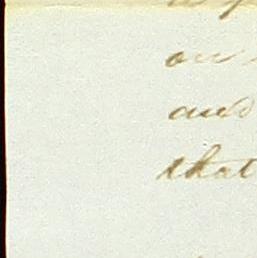 on
and
that